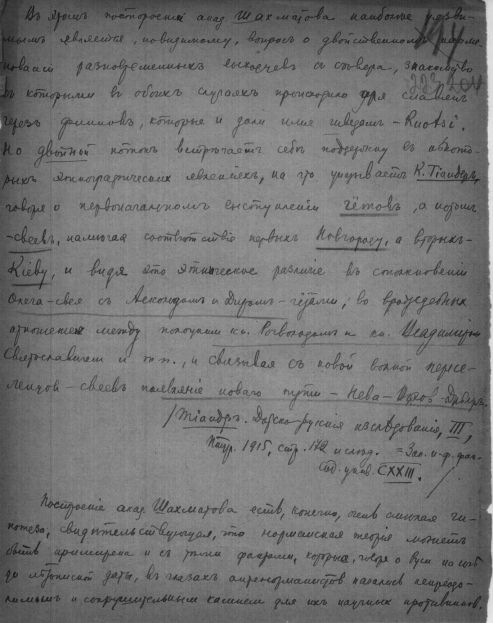 Въ этомъ построеніи акад. Шахматова наиболѣе уязви-
мымъ является, повидимому, вопросъ о двойственномъ
разновременныхъ выходцевъ съ сѣвера, знакомство
съ которыми въ обоихъ случаяхъ происходило для славянъ
черезъ финновъ, которые и дали имя шведамъ – Ruotsi.
Но двойной потокъ встрѣчаетъ себѣ поддержку въ нѣкото-
рыхъ этнографическихъ явленіяхъ, на что указываетъ К. Тіандеръ,
говоря о первоначальномъ выступленіи гётовъ, а позже
– свеевъ, намѣчая соотвѣтствіе первыхъ Новгороду, а вторыхъ –
Кіеву, и видя это этническое различіе въ столкновеніи
Олега-свея съ Аскольдомъ и Диромъ – гётами, во враждебныхъ
отношеніяхъ между полоцкимъ кн. Рогволодомъ и кн. Владиміромъ
Святославичемъ и т. п., и связывая съ новой волной пересе-
ленцовъ – свеевъ появленіе новаго пути – Нева – – Днѣпръ.
/Тіандеръ. Датско-русскія изслѣдованія, III,
1915, стр. и слѣд. = Зап. и-ф. фак.
CXXIII. /
Построеніе акад. Шахматова есть, конечно, очень смѣлая ги-
потеза, свидѣтельствующая, что норманская теорія можетъ
быть примирена и съ тѣми фактами, которые, говоря о Руси
до лѣтописной даты, въ глазахъ антинорманистовъ казались непреодо-
лимымъ и сокрушительнымъ камнемъ для ихъ научныхъ противниковъ.